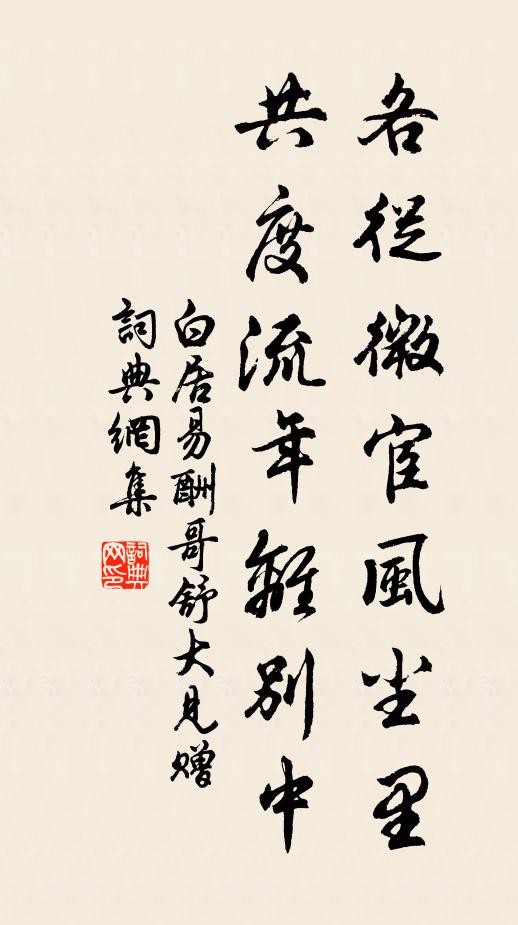 各從微宦風塵里
共度流年離別中
白居易酬哥舒大見贈
詞典網集
詞典網印